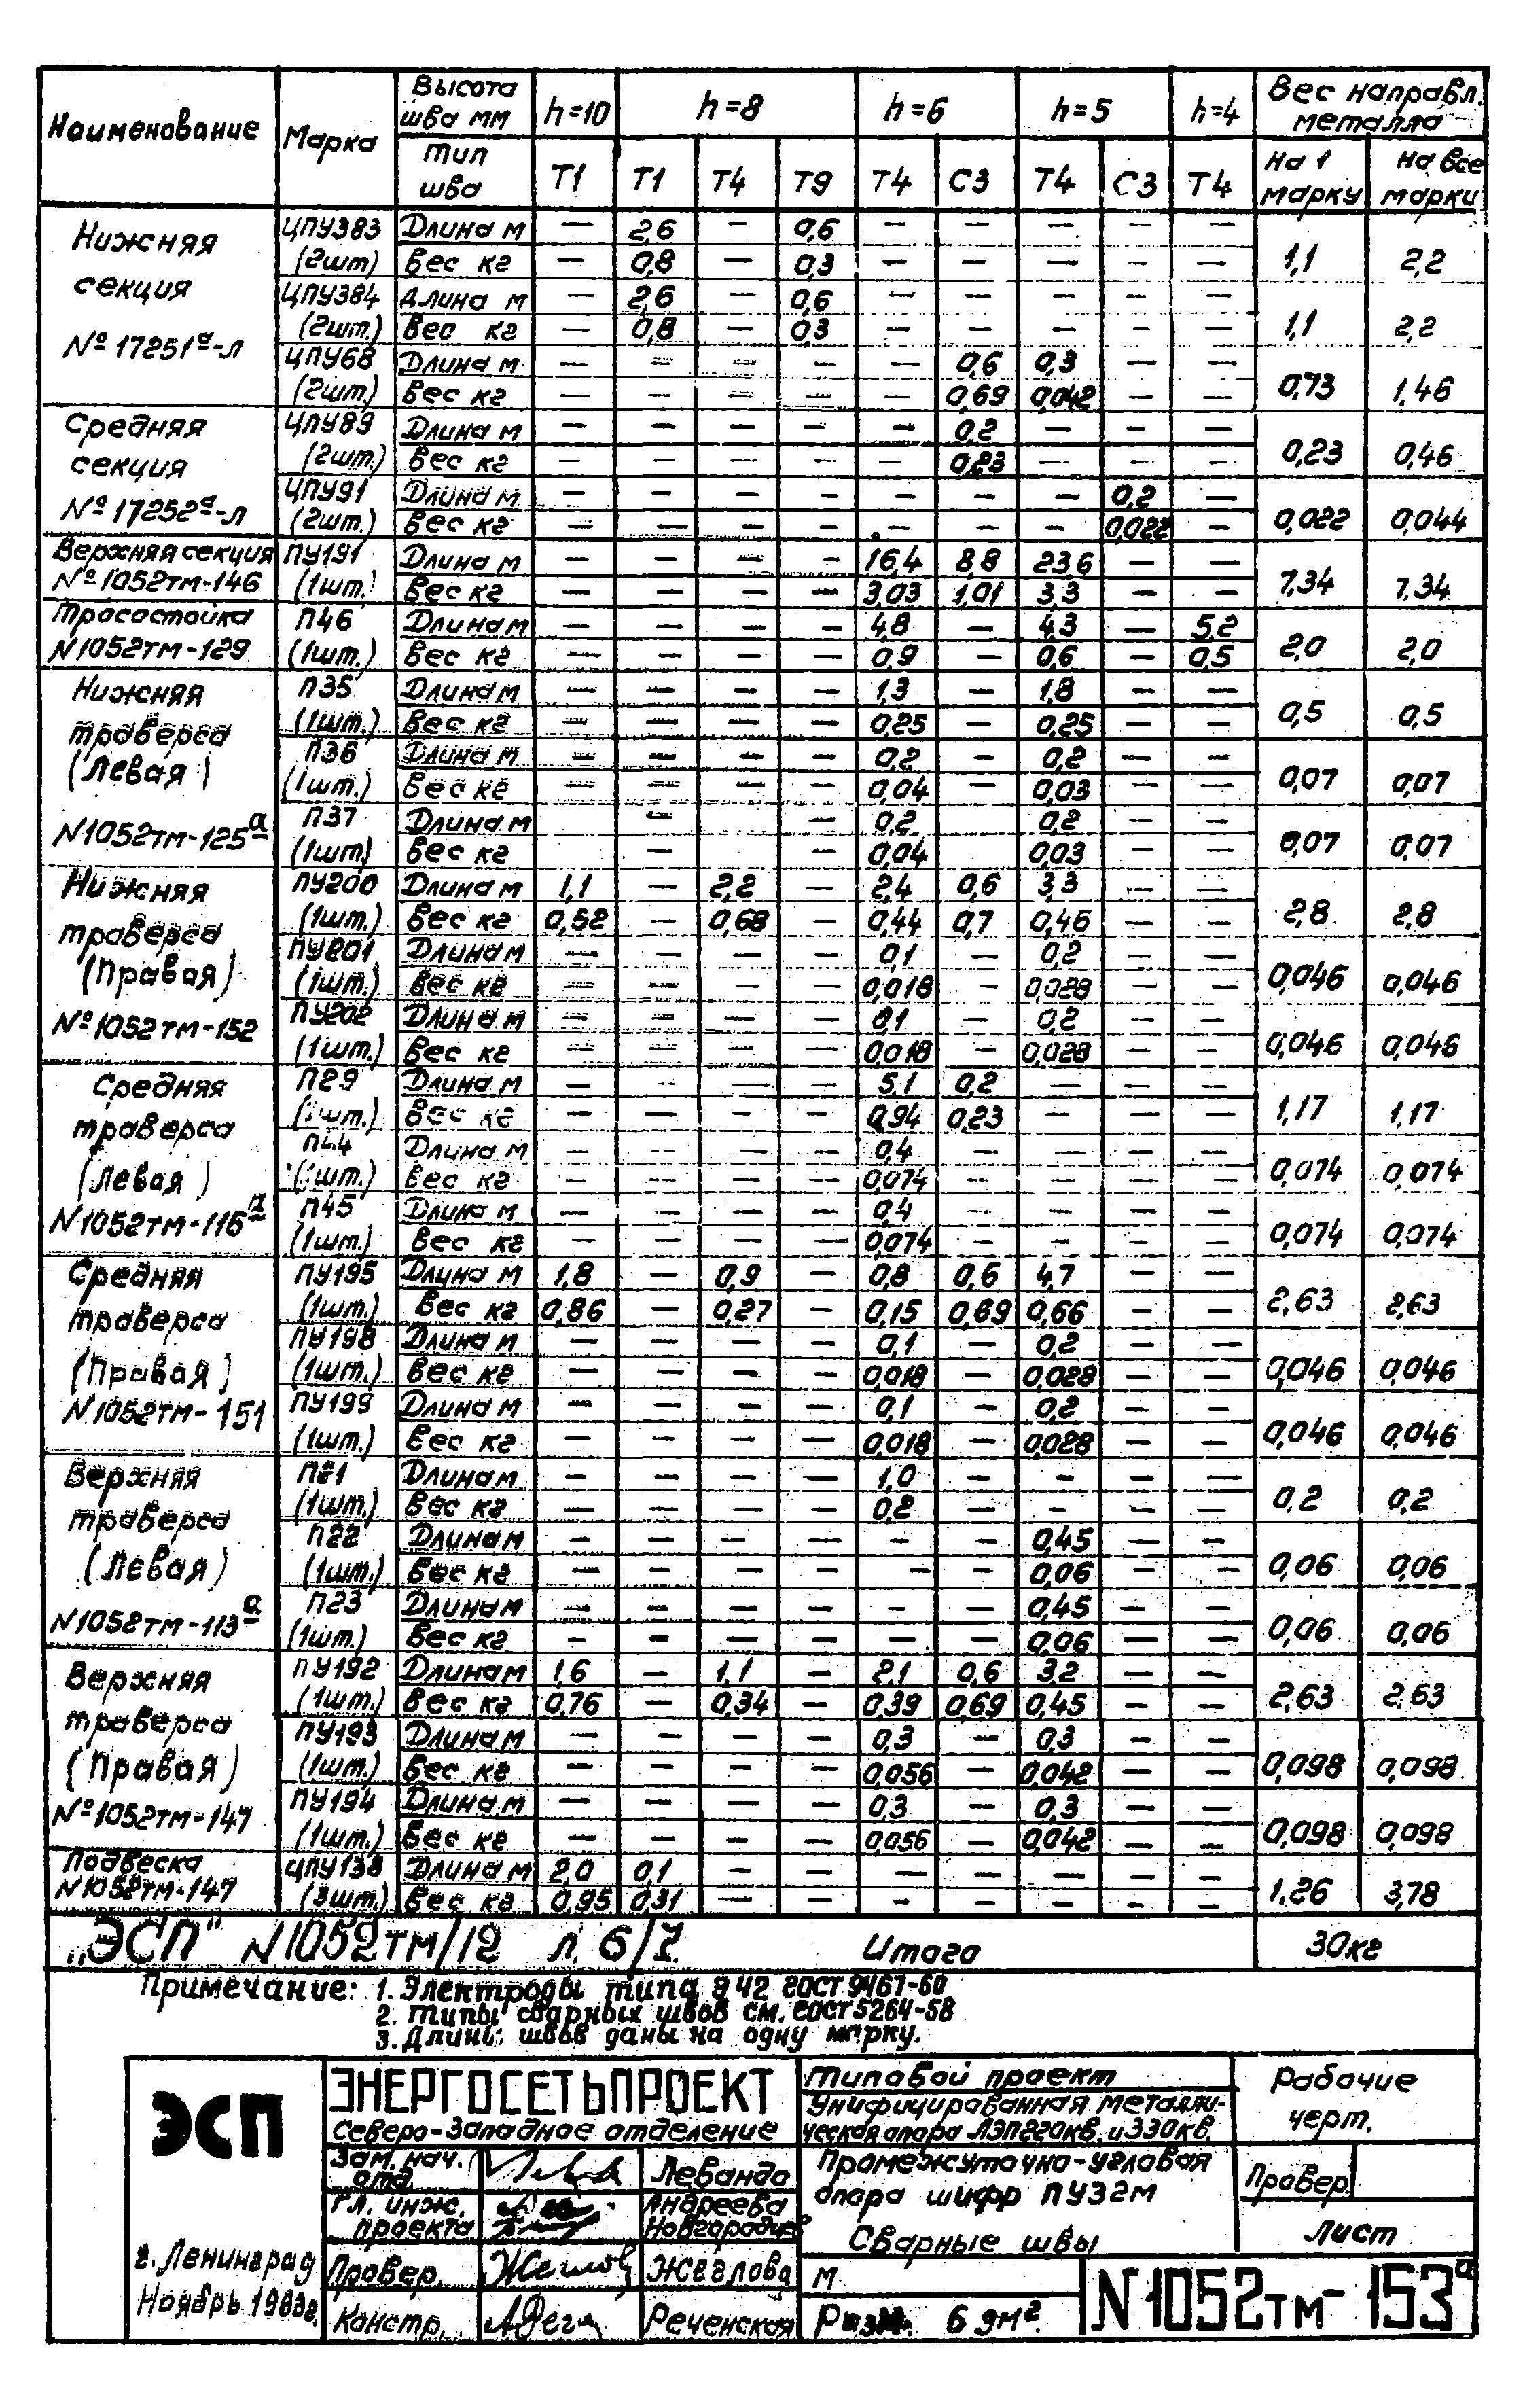 Наименование Марка Высота шва мм h=10 h=8 h=6 h=5 h=4 Вес направл. металла
Тип шва Т1 Т1 Т4 Т9 Т4 С3 Т4 С3 Т4 на 1 марку на все марки
Нижняя секция №17251ª-л
ЦПУ383 Длина м — 2,6 — 0,6 — — — — —
(2шт) Вес кг — 0,8 — 0,3 — — — — — 1,1 2,2
ЦПУ384 Длина м — 2,6 — 0,6 — — — — —
(2шт.) Вес кг — 0,8 — 0,3 — — — — — 1,1 2,2
ЦПУ68 Длина м — — — — — 0,6 0,3 — —
(2шт.) Вес кг — — — — — 0,69 0,042 — — 0,73 1,46
Средняя секция №17252ª-л
ЦПУ89 Длина м — — — — — 0,2 — — —
(2шт.) Вес кг — — — — — 0,23 — — — 0,23 0,46
ЦПУ91 Длина м — — — — — — — 0,2 —
(2шт.) Вес кг — — — — — — — 0,022 — 0,022 0,044
Верхняя секция №1052тм-146
ПУ191 Длина м — — — — 16,4 8,8 23,6 — —
(1шт.) Вес кг — — — — 3,03 1,01 3,3 — — 7,34 7,34
Тросостойка N1052тм-129
П46 Длина м — — — — 4,8 — 4,3 — 5,2
(1шт.) Вес кг — — — — 0,9 — 0,6 — 0,5 2,0 2,0
Нижняя траверса (Левая) N1052тм-125ª
П35 Длина м — — — — 1,3 — 1,8 — —
(1шт.) Вес кг — — — — 0,25 — 0,25 — — 0,5 0,5
П36 Длина м — — — — 0,2 — 0,2 — —
(1шт.) Вес кг — — — — 0,04 — 0,03 — — 0,07 0,07
П37 Длина м — — 0,2 0,2 — —
(1шт) Вес кг — — 0,04 0,03 — — 0,07 0,07
Нижняя траверса (Правая) №1052тм-152
ПУ200 Длина м 1,1 — 2,2 — 2,4 0,6 3,3 — —
(1шт.) Вес кг 0,52 — 0,68 — 0,44 0,7 0,46 — — 2,8 2,8
ПУ201 Длина м — — — — 0,1 — 0,2 — —
(1шт.) Вес кг — — — — 0,018 — 0,028 — — 0,046 0,046
ПУ202 Длина м — — — — 0,1 — 0,2 — —
(1шт.) Вес кг — — — — 0,018 — 0,028 — — 0,046 0,046
Средняя траверса (Левая) N1052тм-116ª
П29 Длина м — — — — 5,1 0,2 — — —
(1шт.) Вес кг — — — — 0,94 0,23 — — — 1,17 1,17
П44 Длина м — — — — 0,4 — — — —
(1шт.) Вес кг — — — — 0,074 — — — — 0,074 0,074
П45 Длина м — — — — 0,4 — — — —
(1шт.) Вес кг — — — — 0,074 — — — — 0,074 0,074
Средняя траверса (Правая) N1052тм-151
ПУ195 Длина м 1,8 — 0,9 — 0,8 0,6 4,7 — —
(1шт.) Вес кг 0,86 — 0,27 — 0,15 0,69 0,66 — — 2,63 2,63
ПУ198 Длина м — — — — 0,1 — 0,2 — —
(1шт.) Вес кг — — — — 0,018 — 0,028 — — 0,046 0,046
ПУ199 Длина м — — — — 0,1 — 0,2 — —
(1шт.) Вес кг — — — — 0,018 — 0,028 — — 0,046 0,046
Верхняя траверса (Левая) N1052тм-113ª
П21 Длина м — — — — 1,0 — — — —
(1шт.) Вес кг — — — — 0,2 — — — — 0,2 0,2
П22 Длина м — — — — — — 0,45 — —
(1шт.) Вес кг — — — — — — 0,06 — — 0,06 0,06
П23 Длина м — — — — — — 0,45 — —
(1шт.) Вес кг — — — — — — 0,06 — — 0,06 0,06
Верхняя траверса (Правая) №1052тм-147
ПУ192 Длина м 1,6 — 1,1 — 2,1 0,6 3,2 — —
(1шт.) Вес кг 0,76 — 0,34 — 0,39 0,69 0,45 — — 2,63 2,63
ПУ193 Длина м — — — — 0,3 — 0,3 — —
(1шт.) Вес кг — — — — 0,056 — 0,042 — — 0,098 0,098
ПУ194 Длина м — — — — 0,3 — 0,3 — —
(1шт.) Вес кг — — — — 0,056 — 0,042 — — 0,098 0,098
Подвеска N1052тм-147
ЦПУ138 Длина м 2,0 0,1 — — — — — — —
(3шт.) Вес кг 0,95 0,31 — — — — — — — 1,26 3,78
„ЭСП" N1052тм/12 л. 6/7 Итого 30кг
Примечание: 1. Электроды типа Э42 ГОСТ 9467-60
2. Типы сварных швов см. ГОСТ 5264-58
3. Длины швов даны на одну марку.
ЭСП
г. Ленинград
Ноябрь 1968г.
ЭНЕРГОСЕТЬПРОЕКТ
Северо-Западное отделение
Зам. нач. отд. Леванда
Гл. инж. проекта Андреева Новгородцев
Провер. Жеглова
Констр. Реченская
Типовой проект
Унифицированная металли-
ческая опора ЛЭП220кв. и 330кв.
Промежуточно-угловая
опора шифр ПУ32м
Сварные швы
М
Разм. 6 дм²
Рабочие черт.
Провер.
Лист
N1052тм-153ª